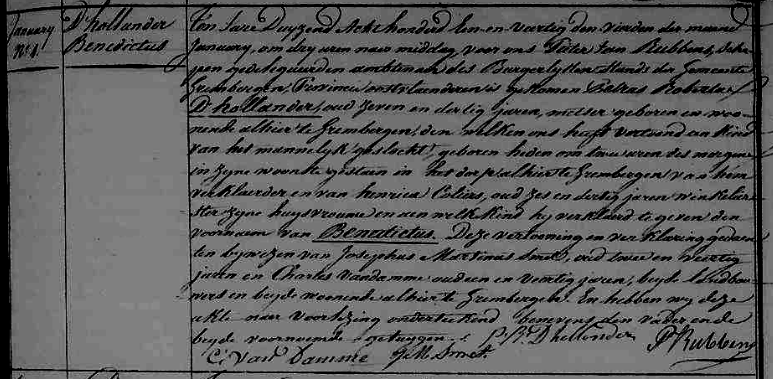 January
N° 1.
D'hollander
Benedictus
Ten Jare Duyzend Acht honderd Een en veertig den vierden der maend
January, om dry uren naer middag, voor ons Pieter Jan Rubbens, Sche-
pen gedelegueerden ambtenaer des Burgerlyken stands der Gemeente
Grembergen, Provincie oostvlaenderen is gekomen Petrus Robertus
D'hollander, oud zeven en dertig jaren, geboren en woo-
nende alhier te Grembergen, den welken ons heeft vertoond een Kind
van het mannelyk geslacht, geboren heden om twee uren des morgens
in zyne woonste gestaen in het dorp alhier te Grembergen van hem
verklaerder en van henrica Coliers, oud zes en dertig jaren winkelier-
ster zyne huysvrouwe en aen welk Kind hy verklaerd te geven den
voornaem van Benedictus. Deze vertooning en verklaring gedaen
ten bywezen van Josephus Martinus Smet, oud twee en
jaren en Charles Vandamme oud een en veertig jaren, beyde Landbou-
wers en beyde woonende alhier te Grembergen. En hebben wy deze
akte naer voorlezing onderteekend benevens den vader en de
beyde voornoemde getuygen.
P. R. D'hollander
P Rubbens
C. Van Damme
J M Smet